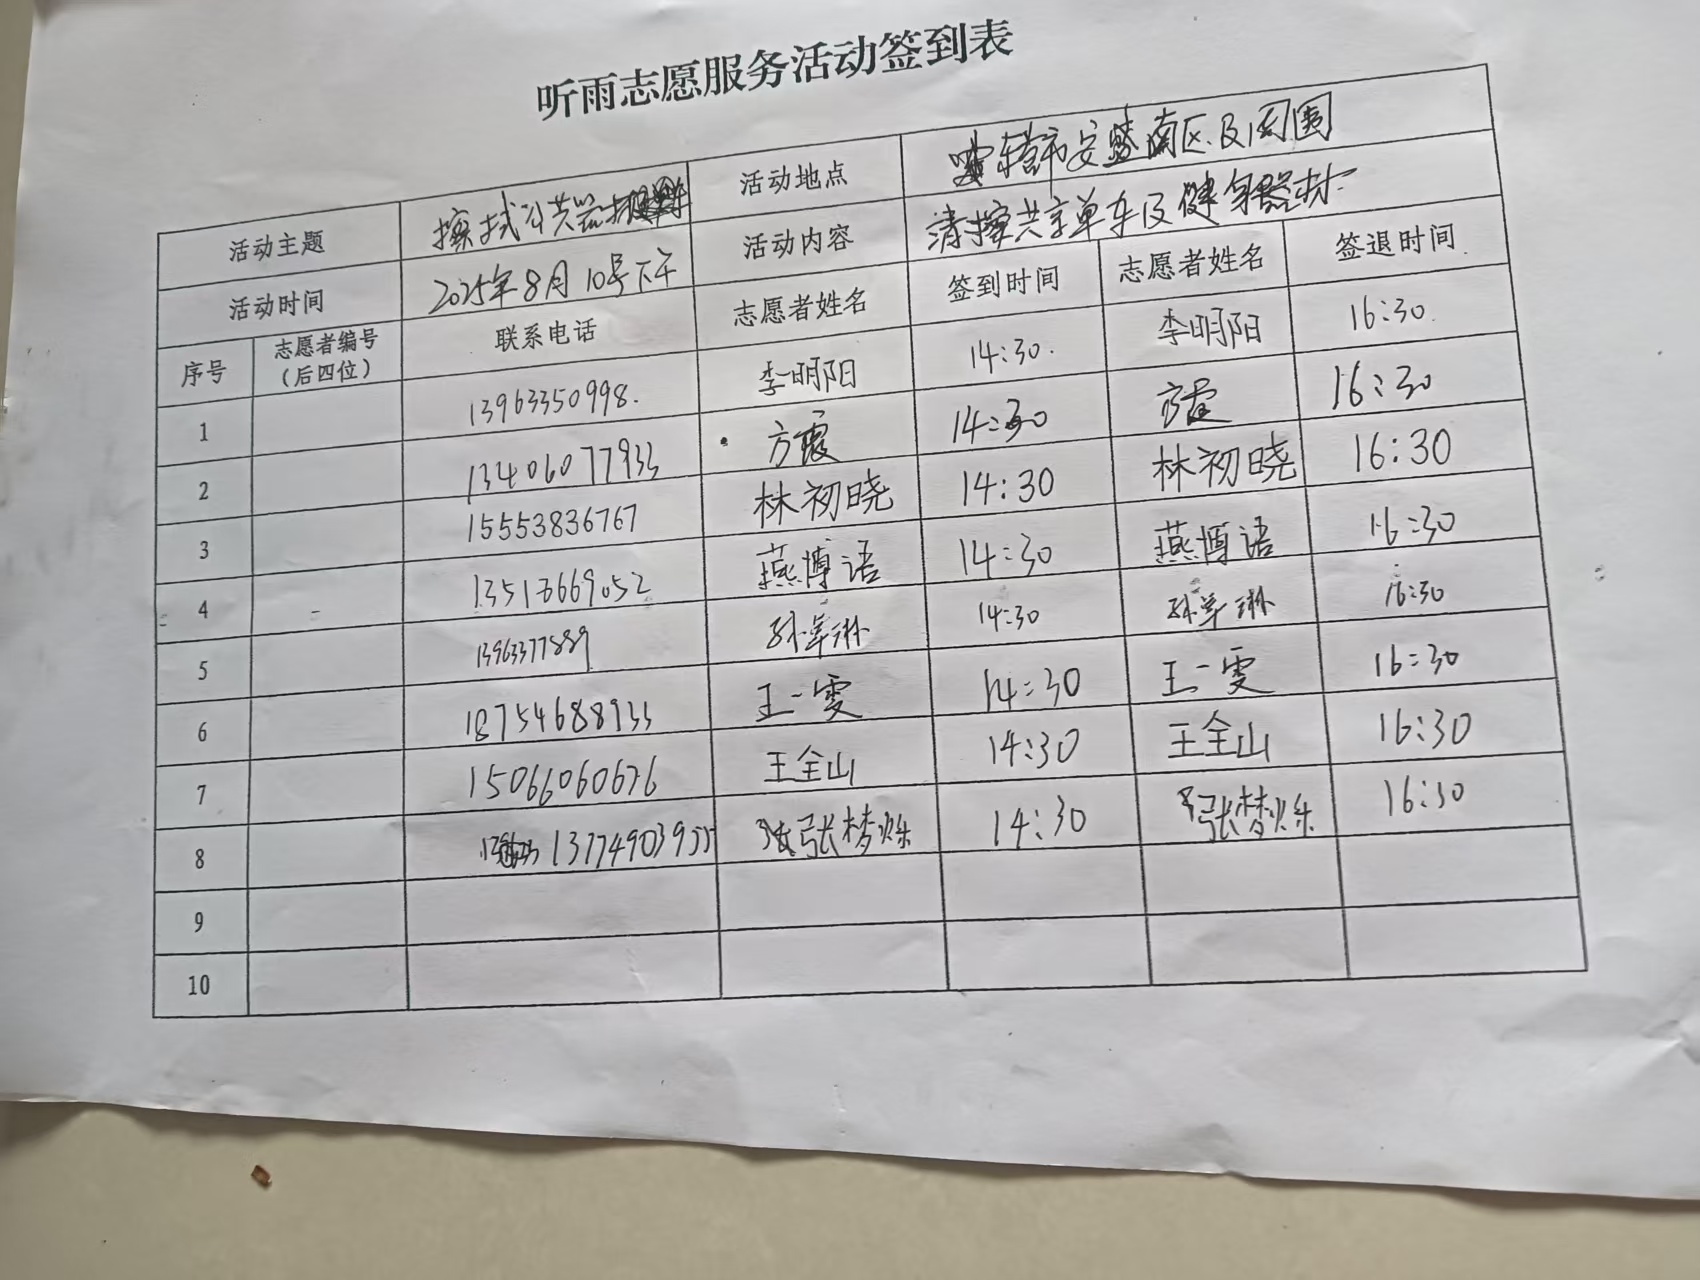 听雨志愿服务活动签到表
活动主题 擦拭公共器材 活动地点 东营市安盛南区及周围
活动时间 2025年8月10号下午 活动内容 清擦共享单车及健身器材
序号 志愿者编号(后四位) 联系电话 志愿者姓名 签到时间 志愿者姓名 签退时间
1 13963350998. 李明阳 14:30. 李明阳 16:30.
2 13406077933 方霞 14:30 方霞 16:30
3 15553836767 林初晓 14:30 林初晓 16:30
4 燕博语 14:30 燕博语 16:30
5 13963377889 14:30 16:30
6 18754688933 王一雯 14:30 王一雯 16:30
7 15066060676 王全山 14:30 王全山 16:30
8 张梦烁 14:30 张梦烁 16:30
9
10